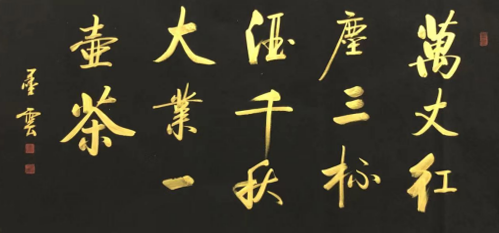 萬丈红
塵三杯
酒千秋
大業一
壺茶
雲